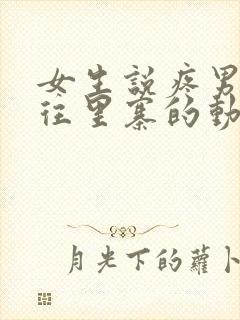 女生説疼男
往里寨的動
月光下的蘿卜